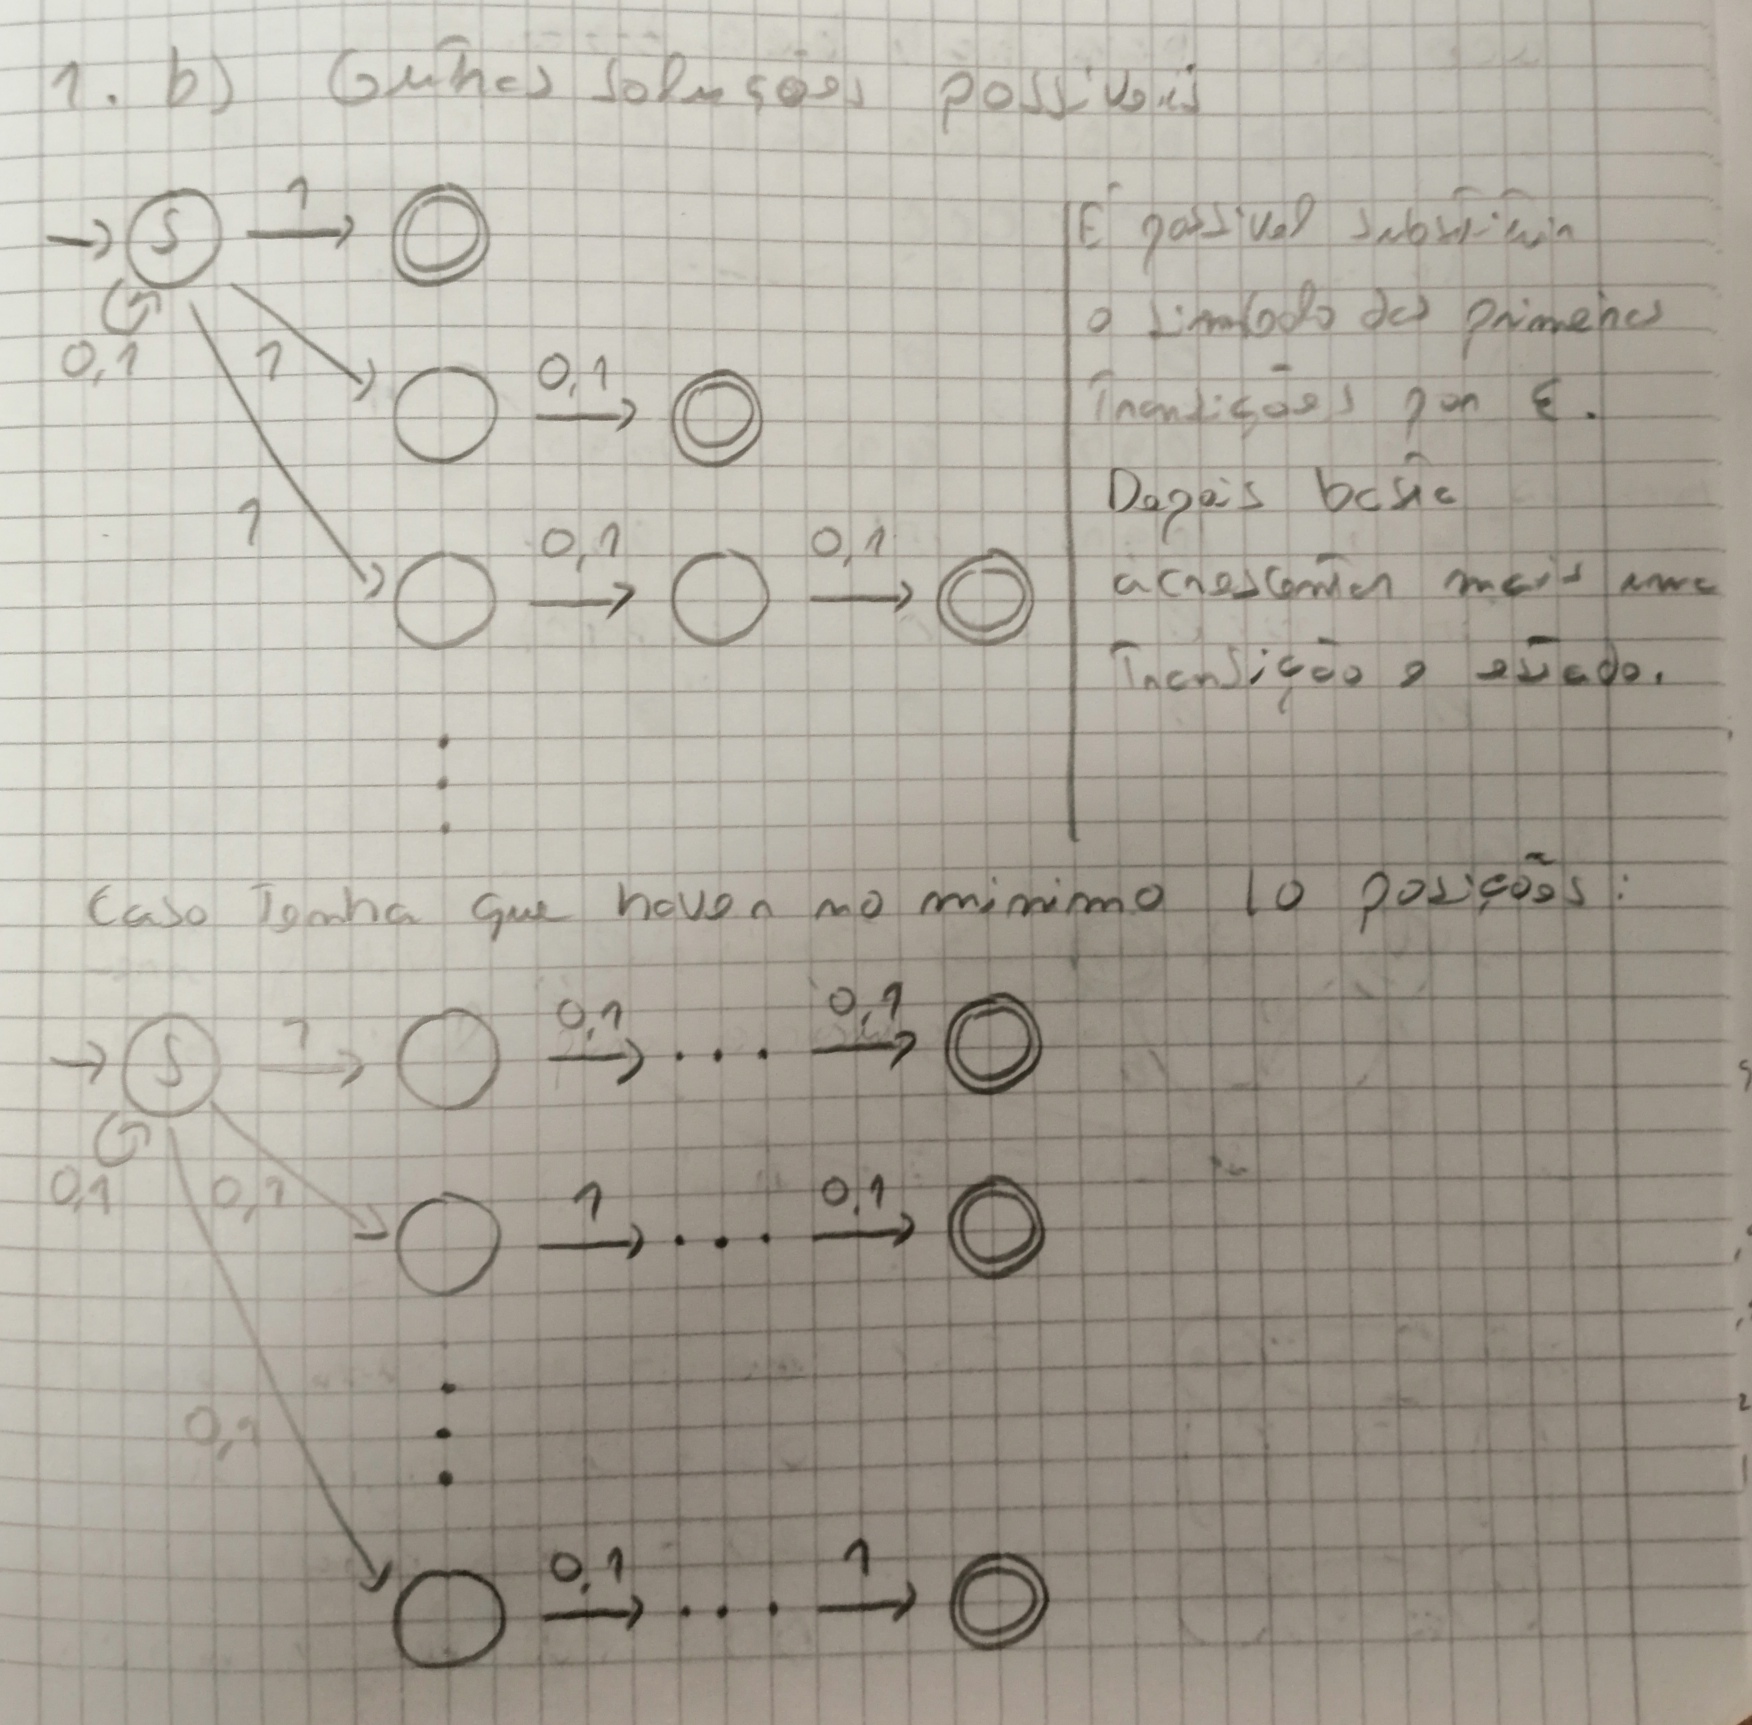 1. b) Outras soluções possíveis
→ S 1
0,1 1 0,1
1 0,1 0,1
É possível substituir
o símbolo das primeiras
transições por ε.
Depois basta
acrescentar mais uma
transição e estado.
Caso tenha que haver no mínimo 10 posições:
→ S 1 0,1 ... 0,1
0,1 0,1 1 ... 0,1
0,1 0,1 ... 1